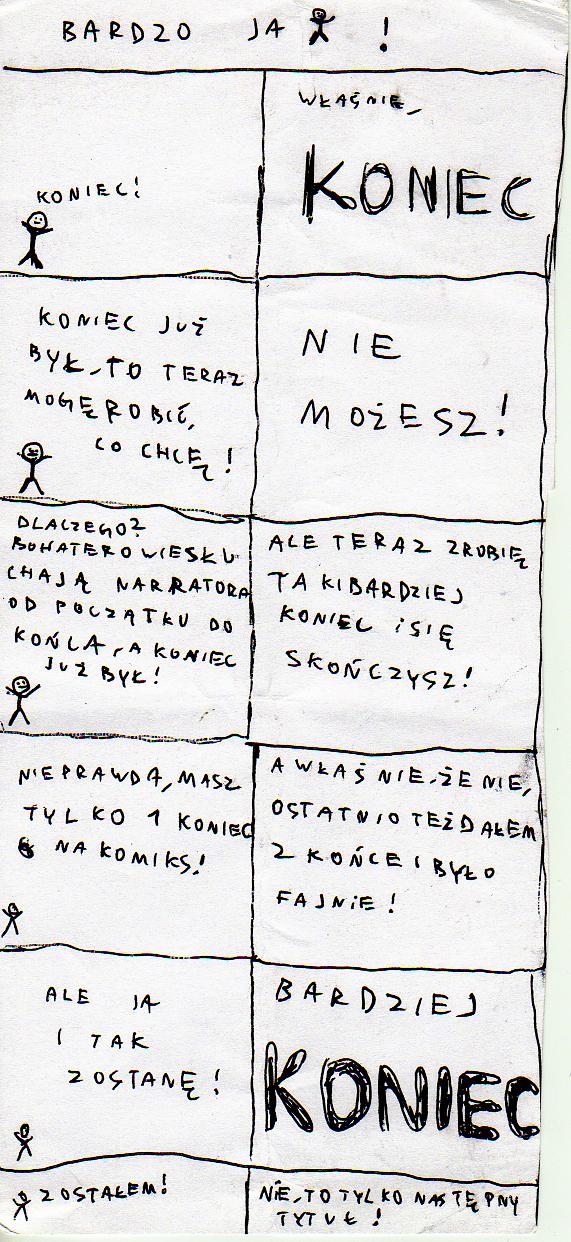 BARDZO JA !
KONIEC!
WŁAŚNIE,
KONIEC
KONIEC JUŻ
BYŁ, TO TERAZ
MOGĘ ROBIĆ,
CO CHCĘ!
NIE
MOŻESZ!
DLACZEGO?
BOHATEROWIE SŁU
CHAJĄ NARRATORA
OD POCZĄTKU DO
KOŃCA, A KONIEC
JUŻ BYŁ!
ALE TERAZ ZROBIĘ
TAKI BARDZIEJ
KONIEC I SIĘ
SKOŃCZYSZ!
NIEPRAWDA, MASZ
TYLKO 1 KONIEC
NA KOMIKS!
A WŁAŚNIE, ŻE NIE,
OSTATNIO TEŻ DAŁEM
2 KOŃCE I BYŁO
FAJNIE!
ALE JA
I TAK
ZOSTANĘ!
BARDZIEJ
KONIEC
ZOSTAŁEM!
NIE, TO TYLKO NASTĘPNY
TYTUŁ!